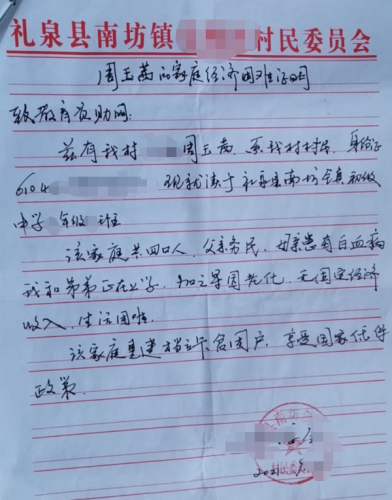 礼泉县南坊镇 村民委员会
周玉茜的家庭经济困难证明
致教育资助网:
兹有我村 周玉茜,系我村村民,身份证
6104 现就读于礼泉县南坊镇初级
中学 年级 班
该家庭共四口人,父亲务民,母亲患有白血病
我和弟弟正在上学,加之 无固定经济
收入,生活困难。
该家庭是建档立卡贫困户,享受国家优惠
政策。